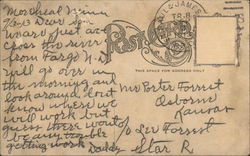 Moorhead Minn
7/30 Dear son
ward just ac
cross the river
from Fargo N.D
will go over in
the morning and
look around. dont
know where we
will work but
guess there wont
be any trouble
getting work
Daddy
POST CARD
THIS SPACE FOR ADDRESS ONLY
Mr Forrest
Osborne
Kansas
c/o Lew Forrest
Star R